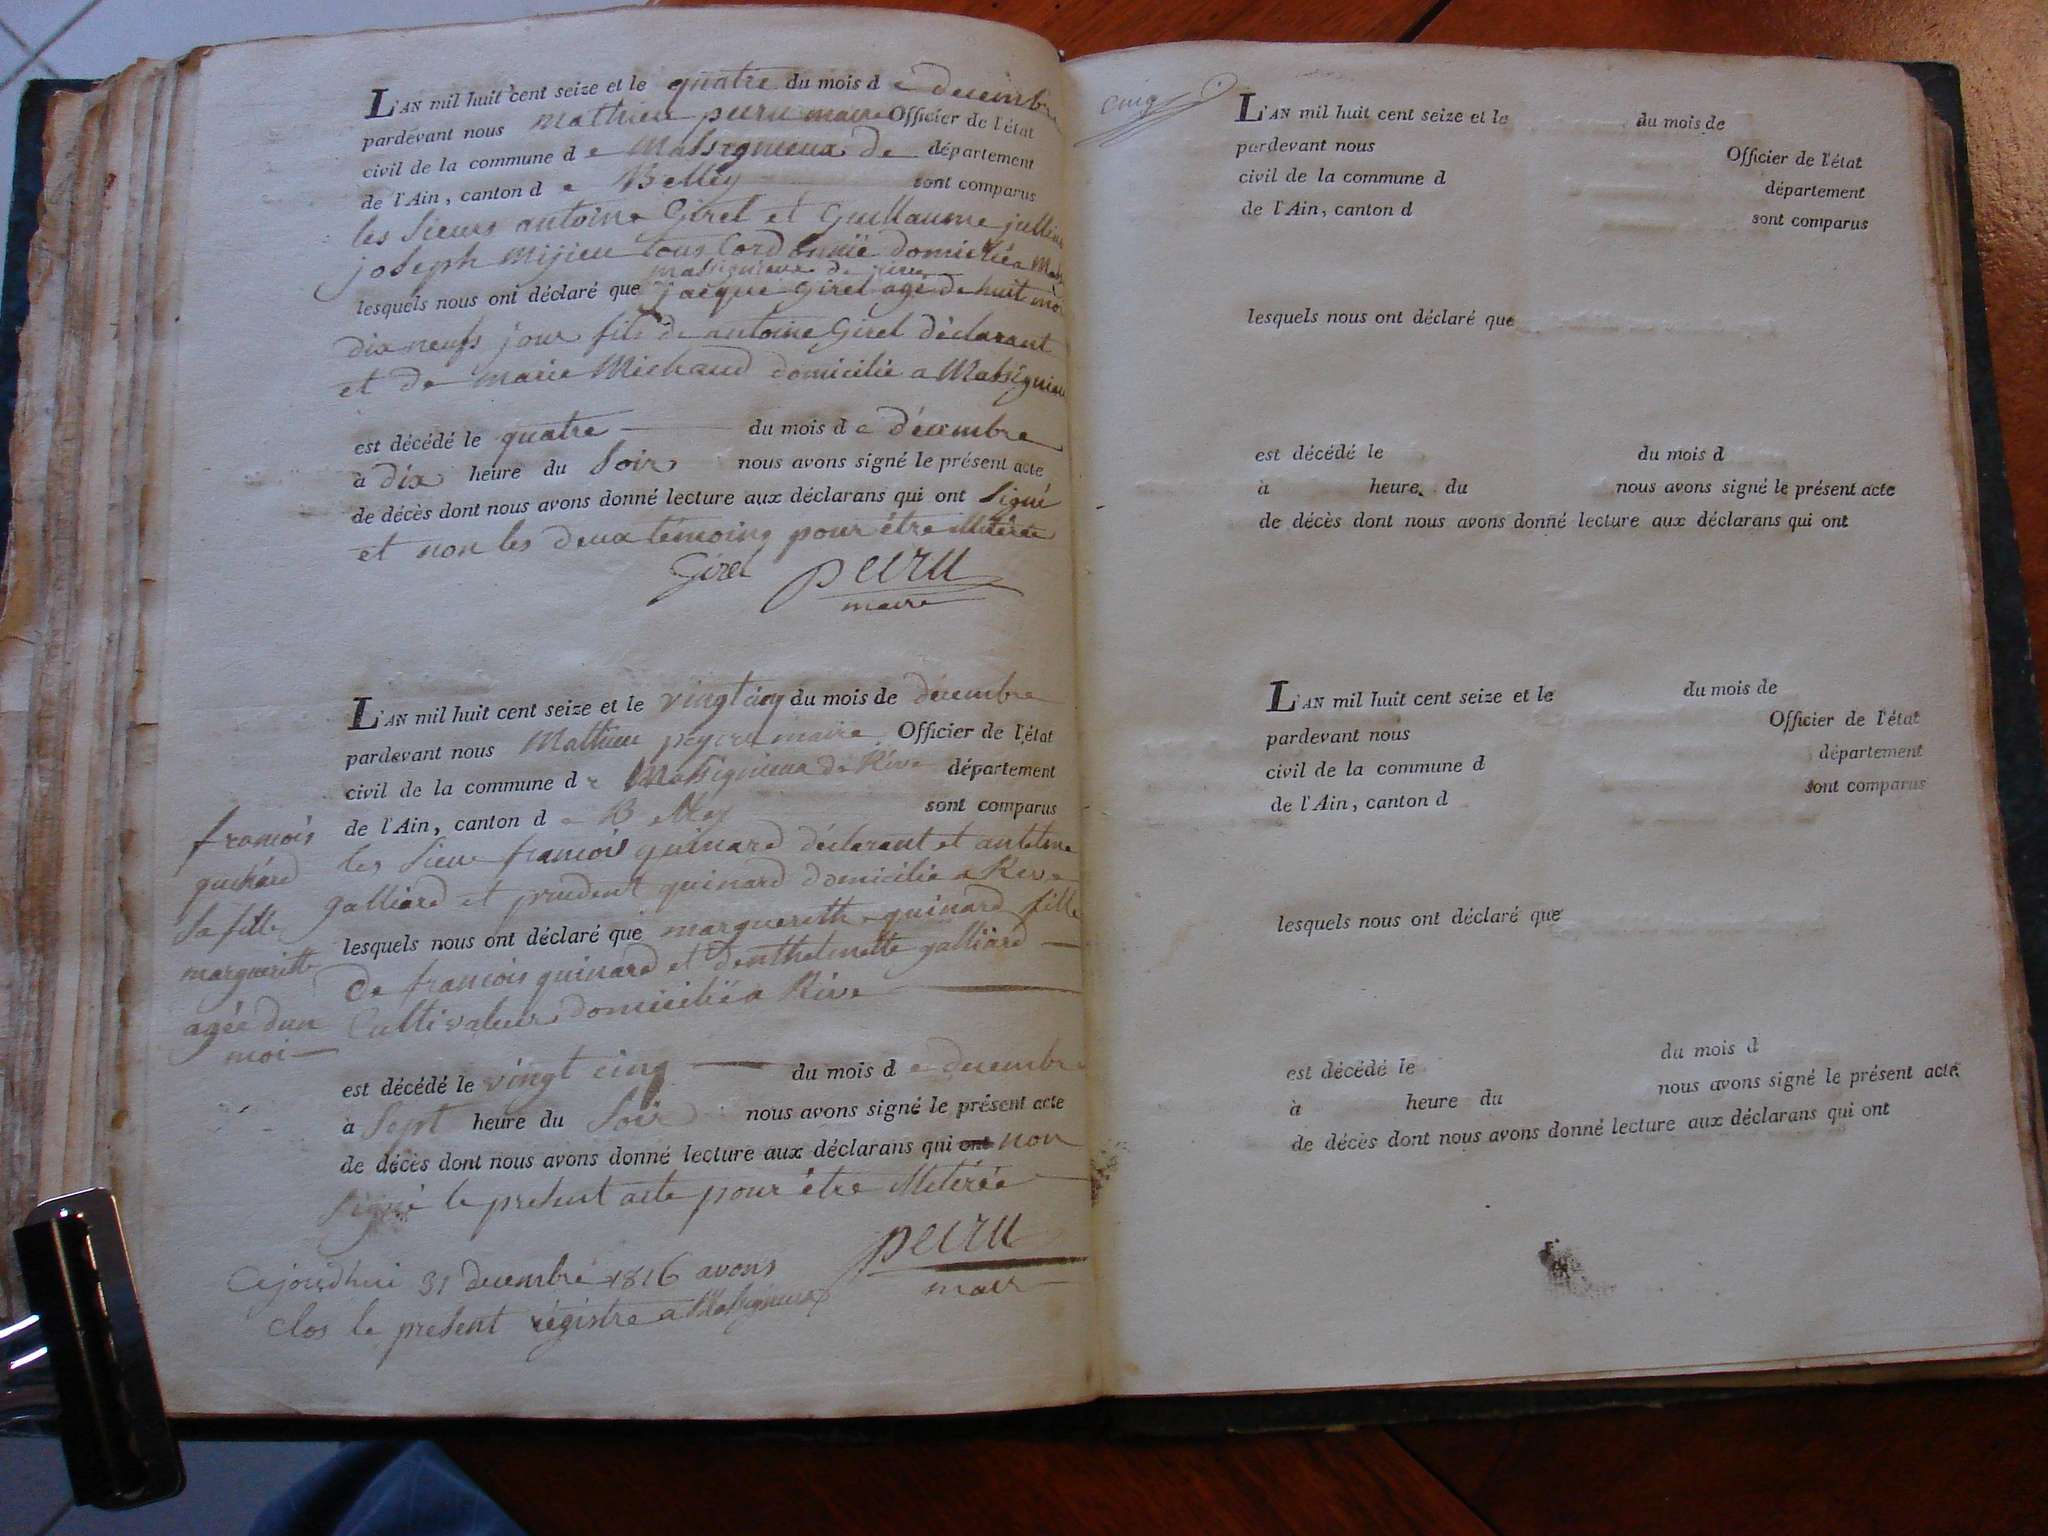 L'AN mil huit cent seize et le quatre du mois de decembre
pardevant nous mathieu peiru maire Officier de l'état
civil de la commune de Massignieux de département
de l'Ain, canton de Belley sont comparus
les sieurs antoine Girel et Guillaume jullien
joseph mijieu tous domicilié a
massignieux de rive
lesquels nous ont déclaré que jacque Girel agé de huit mois
dix neufs jour fils de antoine Girel déclarant
et de marie Michaud domicilié a Massignieu
est décédé le quatre du mois de décembre
à dix heure du soir nous avons signé le présent acte
de décès dont nous avons donné lecture aux déclarans qui ont signé
et non les deux témoins pour être illitérée
Girel peiru
maire
L'AN mil huit cent seize et le vingt cinq du mois de décembre
pardevant nous Mathieu peyru maire Officier de l'état
civil de la commune de Massignieux de Rive département
de l'Ain, canton de Belley sont comparus
les sieur francois guinard déclarant et antelme
galliard et prudent guinard domicilié a Rive
lesquels nous ont déclaré que marguereth guinard fille
de francois guinard et denthelmette galliard
Cultivateur domicilié a Rive
francois
guinard
sa fille
margueritte
agée dun
moi
est décédé le vingt cinq du mois de decembre
à sept heure du soir nous avons signé le présent acte
de décès dont nous avons donné lecture aux déclarans qui ont non
signé le present acte pour être illitérée
peiru
maire
Ajourdhui 31 decembre 1816 avons
clos le present régistre a Massignieux
cinq
L'AN mil huit cent seize et le du mois de
pardevant nous Officier de l'état
civil de la commune d département
de l'Ain, canton d sont comparus
lesquels nous ont déclaré que
est décédé le du mois d
à heure du nous avons signé le présent acte
de décès dont nous avons donné lecture aux déclarans qui ont
L'AN mil huit cent seize et le du mois de
pardevant nous Officier de l'état
civil de la commune d département
de l'Ain, canton d sont comparus
lesquels nous ont déclaré que
est décédé le du mois d
à heure du nous avons signé le présent acte
de décès dont nous avons donné lecture aux déclarans qui ont